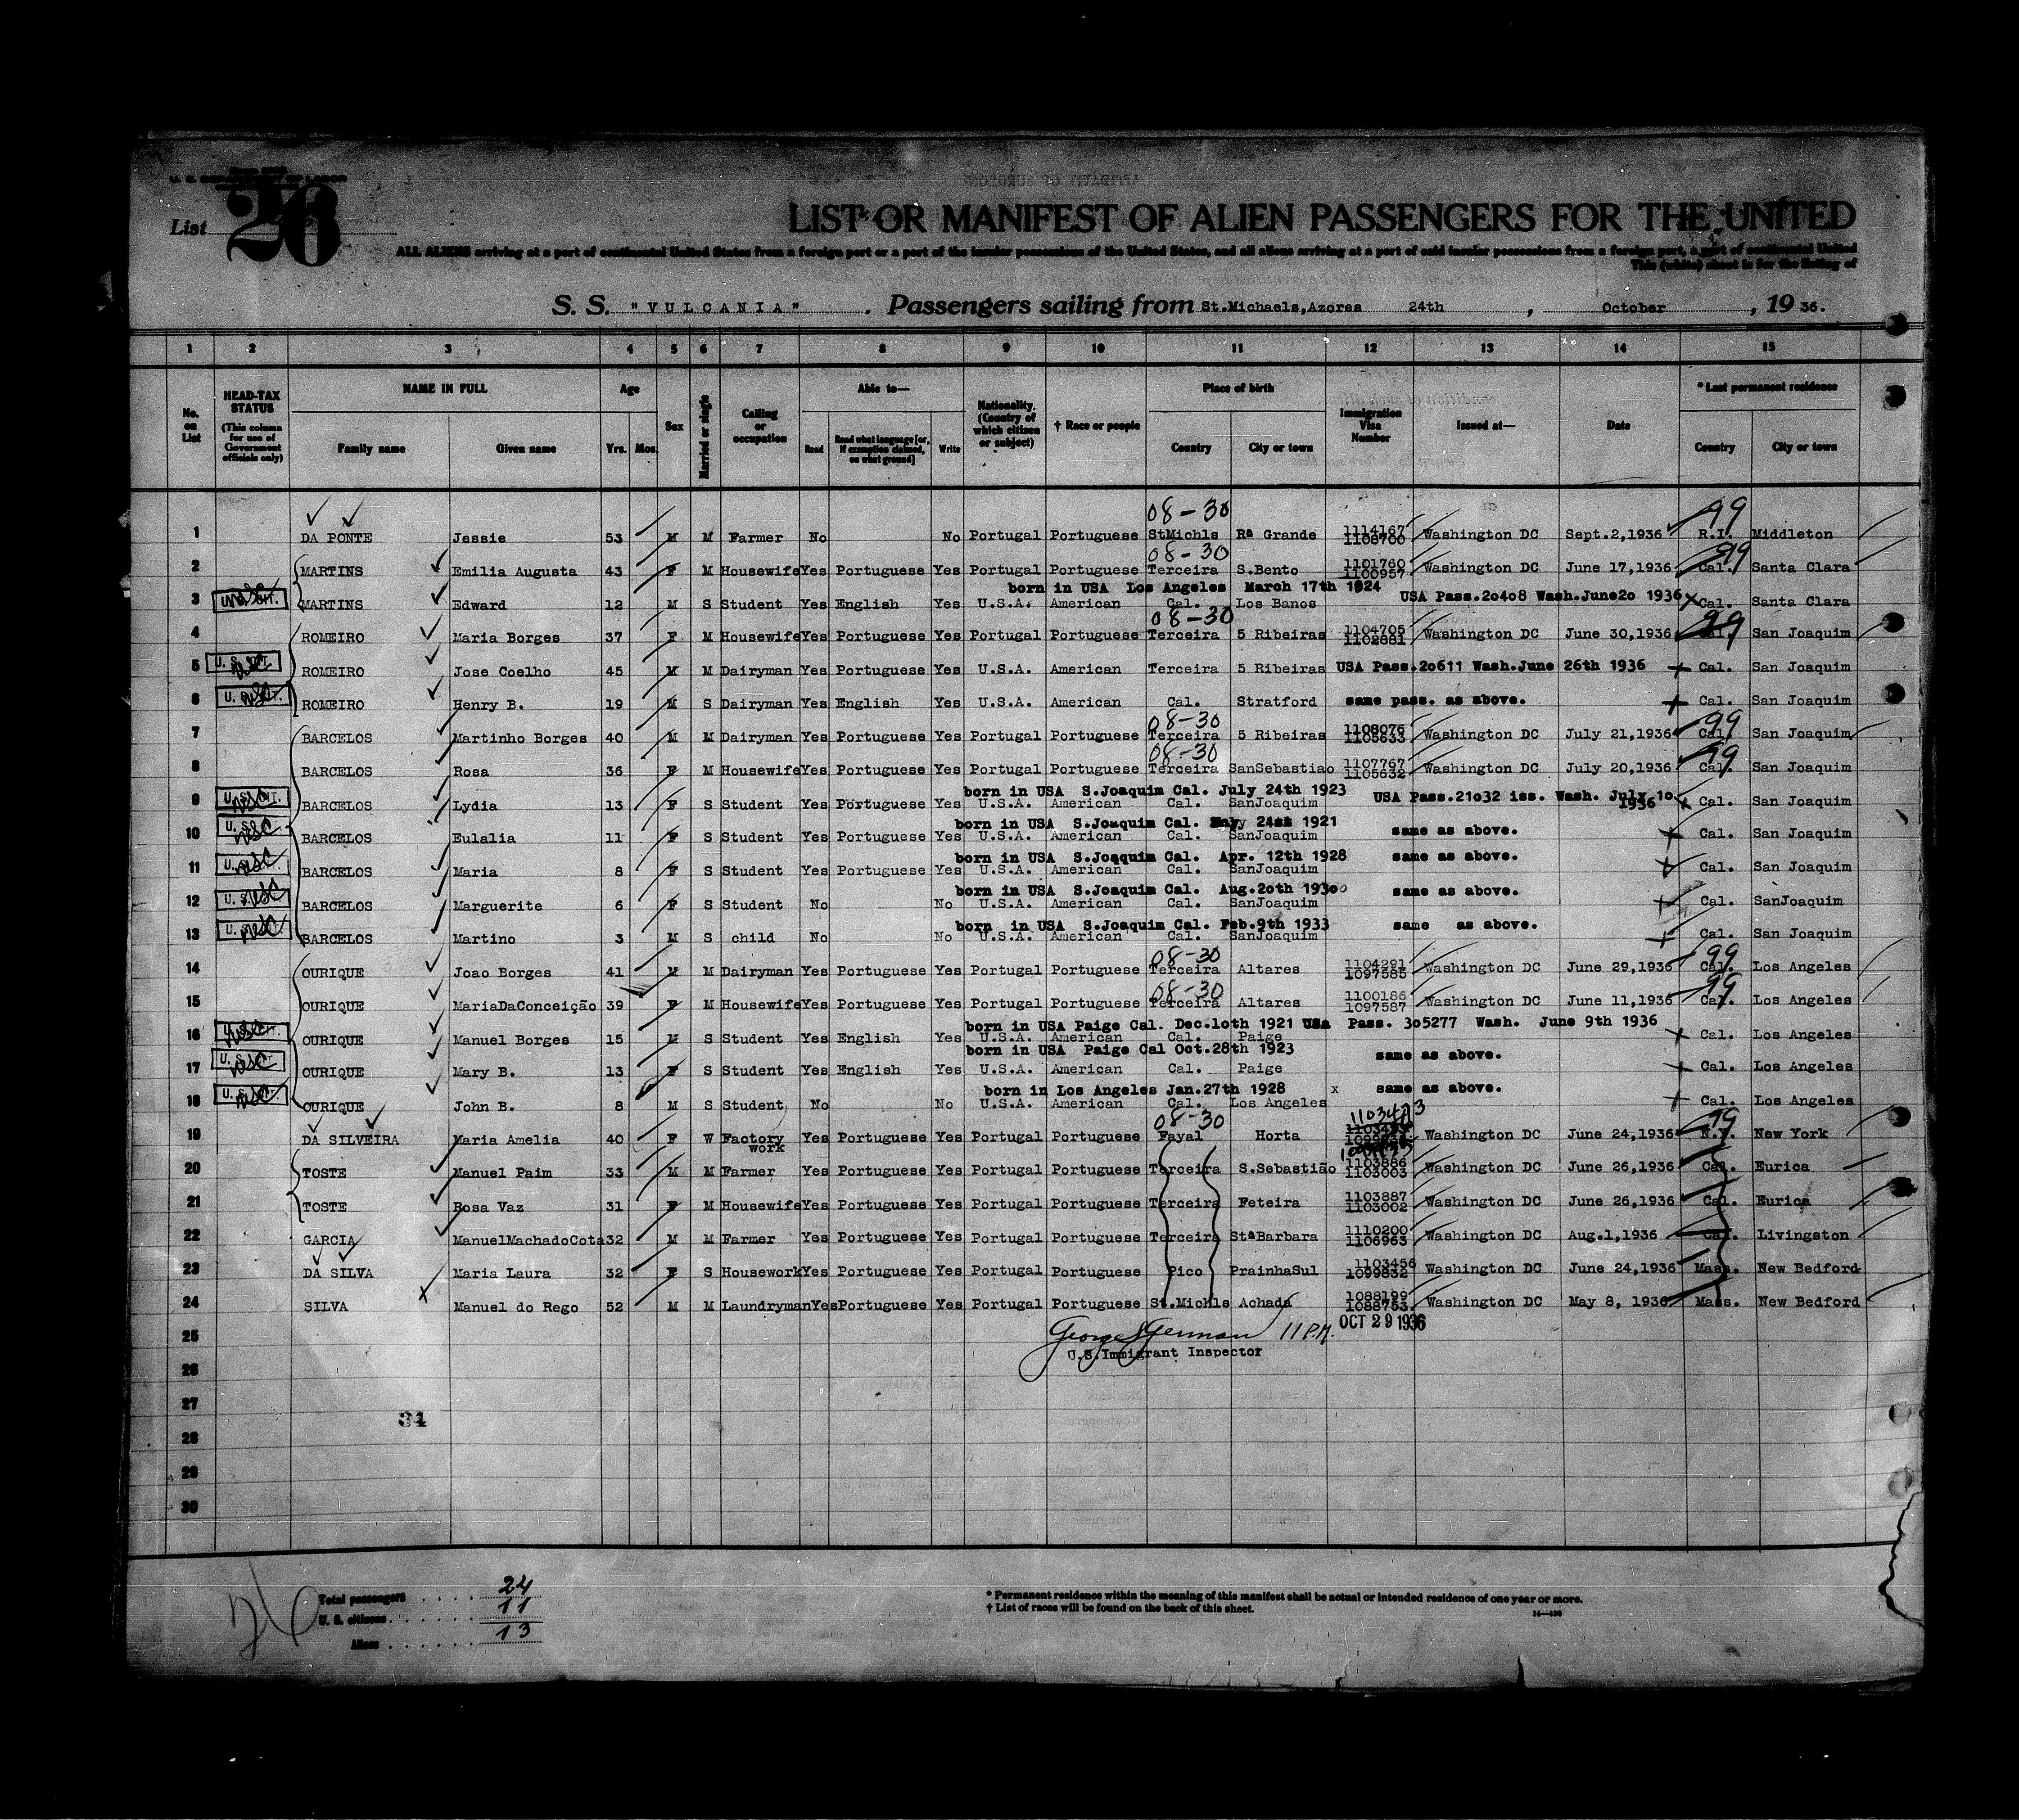 List 26
LIST OR MANIFEST OF ALIEN PASSENGERS FOR THE UNITED
ALL ALIENS arriving at a port of continental United States from a foreign port or a port of the insular possessions of the United States, and all aliens arriving at a port of said insular possessions from a foreign port, a port of continental United
This (white) sheet is for the listing of
S. S. "VULCANIA". Passengers sailing from St.Michaels,Azores 24th, October, 19 36.
1 2 3 4 5 6 7 8 9 10 11 12 13 14 15
No. on List
HEAD-TAX STATUS (This column for use of Government officials only)
NAME IN FULL Family name Given name
Age Yrs. Mos.
Sex
Married or single
Calling or occupation
Able to— Read Read what language [or, if exemption claimed, on what ground] Write
Nationality. (Country of which citizen or subject)
† Race or people
Place of birth Country City or town
Immigration Visa Number
Issued at—
Date
* Last permanent residence Country City or town
08-30 99
1 DA PONTE Jessie 53 M M Farmer No No Portugal Portuguese StMichls Rª Grande 1114167 1108700 Washington DC Sept.2,1936 R.I. Middleton
08-30 99
2 MARTINS Emilia Augusta 43 F M Housewife Yes Portuguese Yes Portugal Portuguese Terceira S.Bento 1101760 1100957 Washington DC June 17,1936 Cal. Santa Clara
born in USA Los Angeles March 17th 1924
3 MARTINS Edward 12 M S Student Yes English Yes U.S.A. American Cal. Los Banos USA Pass.20408 Wash.June20 1936 Cal. Santa Clara
08-30 99
4 ROMEIRO Maria Borges 37 F M Housewife Yes Portuguese Yes Portugal Portuguese Terceira 5 Ribeiras 1104705 1102881 Washington DC June 30,1936 Cal. San Joaquim
5 U. S. CIT. USC ROMEIRO Jose Coelho 45 M M Dairyman Yes Portuguese Yes U.S.A. American Terceira 5 Ribeiras USA Pass.20611 Wash.June 26th 1936 Cal. San Joaquim
6 U. S. CIT. USC ROMEIRO Henry B. 19 M S Dairyman Yes English Yes U.S.A. American Cal. Stratford same pass. as above. Cal. San Joaquim
08-30 99
7 BARCELOS Martinho Borges 40 M M Dairyman Yes Portuguese Yes Portugal Portuguese Terceira 5 Ribeiras 1108076 1105633 Washington DC July 21,1936 Cal. San Joaquim
08-30 99
8 BARCELOS Rosa 36 F M Housewife Yes Portuguese Yes Portugal Portuguese Terceira SanSebastiao 1107767 1105632 Washington DC July 20,1936 Cal. San Joaquim
born in USA S.Joaquim Cal. July 24th 1923
9 U. S. CIT. USC BARCELOS Lydia 13 F S Student Yes Portuguese Yes U.S.A. American Cal. SanJoaquim USA Pass.21032 iss. Wash. July 10 1936 Cal. San Joaquim
born in USA S.Joaquim Cal. May 24th 1921
10 U. S. USC BARCELOS Eulalia 11 F S Student Yes Portuguese Yes U.S.A. American Cal. SanJoaquim same as above. Cal. San Joaquim
born in USA S.Joaquim Cal. Apr. 12th 1928
11 U. S. USC BARCELOS Maria 8 F S Student Yes Portuguese Yes U.S.A. American Cal. SanJoaquim same as above. Cal. San Joaquim
born in USA S.Joaquim Cal. Aug.20th 1930
12 U. S. USC BARCELOS Marguerite 6 F S Student No No U.S.A. American Cal. SanJoaquim same as above. Cal. SanJoaquim
born in USA S.Joaquim Cal. Feb.9th 1933
13 U. S. USC BARCELOS Martino 3 M S child No No U.S.A. American Cal. SanJoaquim same as above. Cal. San Joaquim
08-30 99
14 OURIQUE Joao Borges 41 M M Dairyman Yes Portuguese Yes Portugal Portuguese Terceira Altares 1104291 1097585 Washington DC June 29,1936 Cal. Los Angeles
08-30 99
15 OURIQUE MariaDaConceição 39 F M Housewife Yes Portuguese Yes Portugal Portuguese Terceira Altares 1100186 1097587 Washington DC June 11,1936 Cal. Los Angeles
born in USA Paige Cal. Dec.10th 1921 USA Pass. 305277 Wash. June 9th 1936
16 USC OURIQUE Manuel Borges 15 M S Student Yes English Yes U.S.A. American Cal. Paige Cal. Los Angeles
born in USA Paige Cal Oct.28th 1923
17 U. S. USC OURIQUE Mary B. 13 F S Student Yes English Yes U.S.A. American Cal. Paige same as above. Cal. Los Angeles
born in Los Angeles Jan.27th 1928 x same as above.
18 U. S. USC OURIQUE John B. 8 M S Student No No U.S.A. American Cal. Los Angeles Cal. Los Angeles
08-30 99
19 DA SILVEIRA Maria Amelia 40 F W Factory work Yes Portuguese Yes Portugal Portuguese Fayal Horta Washington DC June 24,1936 N.Y. New York
20 TOSTE Manuel Paim 33 M M Farmer Yes Portuguese Yes Portugal Portuguese Terceira S.Sebastião 1103886 1103003 Washington DC June 26,1936 Cal. Eurica
21 TOSTE Rosa Vaz 31 F M Housewife Yes Portuguese Yes Portugal Portuguese Terceira Feteira 1103887 1103002 Washington DC June 26,1936 Cal. Eurica
22 GARCIA ManuelMachadoCota 32 M M Farmer Yes Portuguese Yes Portugal Portuguese Terceira StªBarbara 1110200 1106963 Washington DC Aug.1,1936 Cal. Livingston
23 DA SILVA Maria Laura 32 F S Housework Yes Portuguese Yes Portugal Portuguese Pico PrainhaSul 1103456 1099832 Washington DC June 24,1936 Mass. New Bedford
24 SILVA Manuel do Rego 52 M M Laundryman Yes Portuguese Yes Portugal Portuguese St.Michls Achada 1088199 1088753 Washington DC May 8, 1936 Mass. New Bedford
25 George S German 11 P.M. OCT 29 1936
U.S.Immigrant Inspector
26
27
34
28
29
30
26
Total passengers 24
U. S. citizens 11
Aliens 13
* Permanent residence within the meaning of this manifest shall be actual or intended residence of one year or more.
† List of races will be found on the back of this sheet.